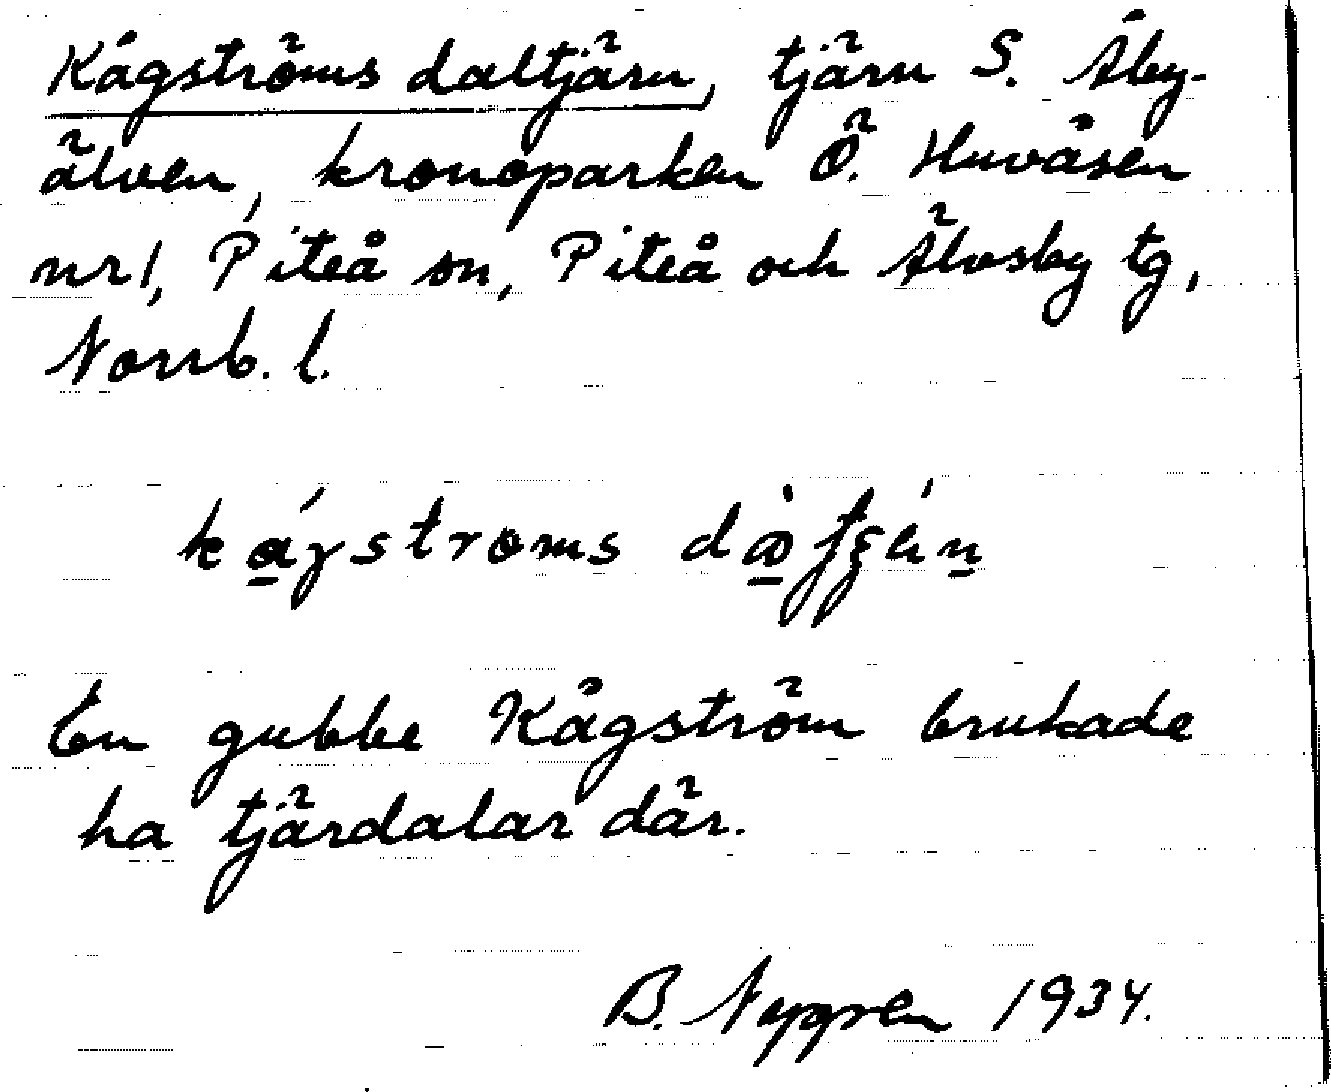 Kågströms daltjärn, tjärn S. Åby-
älven, kronoparken Ö. Huvåsen
nr 1, Piteå sn, Piteå och Älvsby tg,
Norrb. l.
En gubbe Kågström brukade
ha tjärdalar där.
B. Nygren 1934.